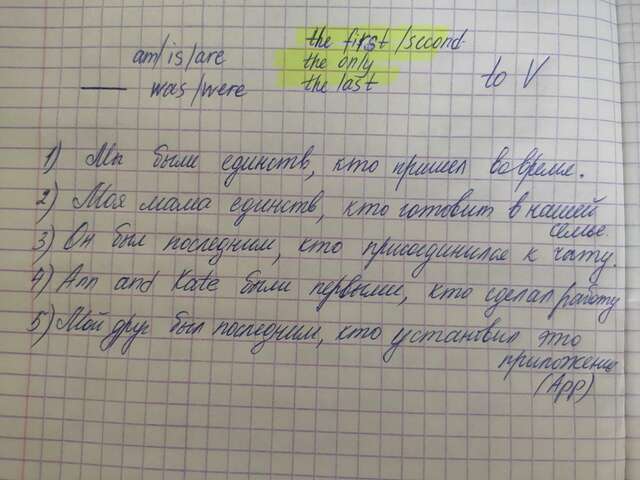 the first/second
am/is/are the only to V
— was/were the last
1) Мы были единств, кто пришел вовремя.
2) Моя мама единств, кто готовит в нашей
семье
3) Он был последним, кто присоединился к чату.
4) Ann and Kate были первыми, кто сделал работу
5) Мой друг был последним, кто установил это
приложение
(App)